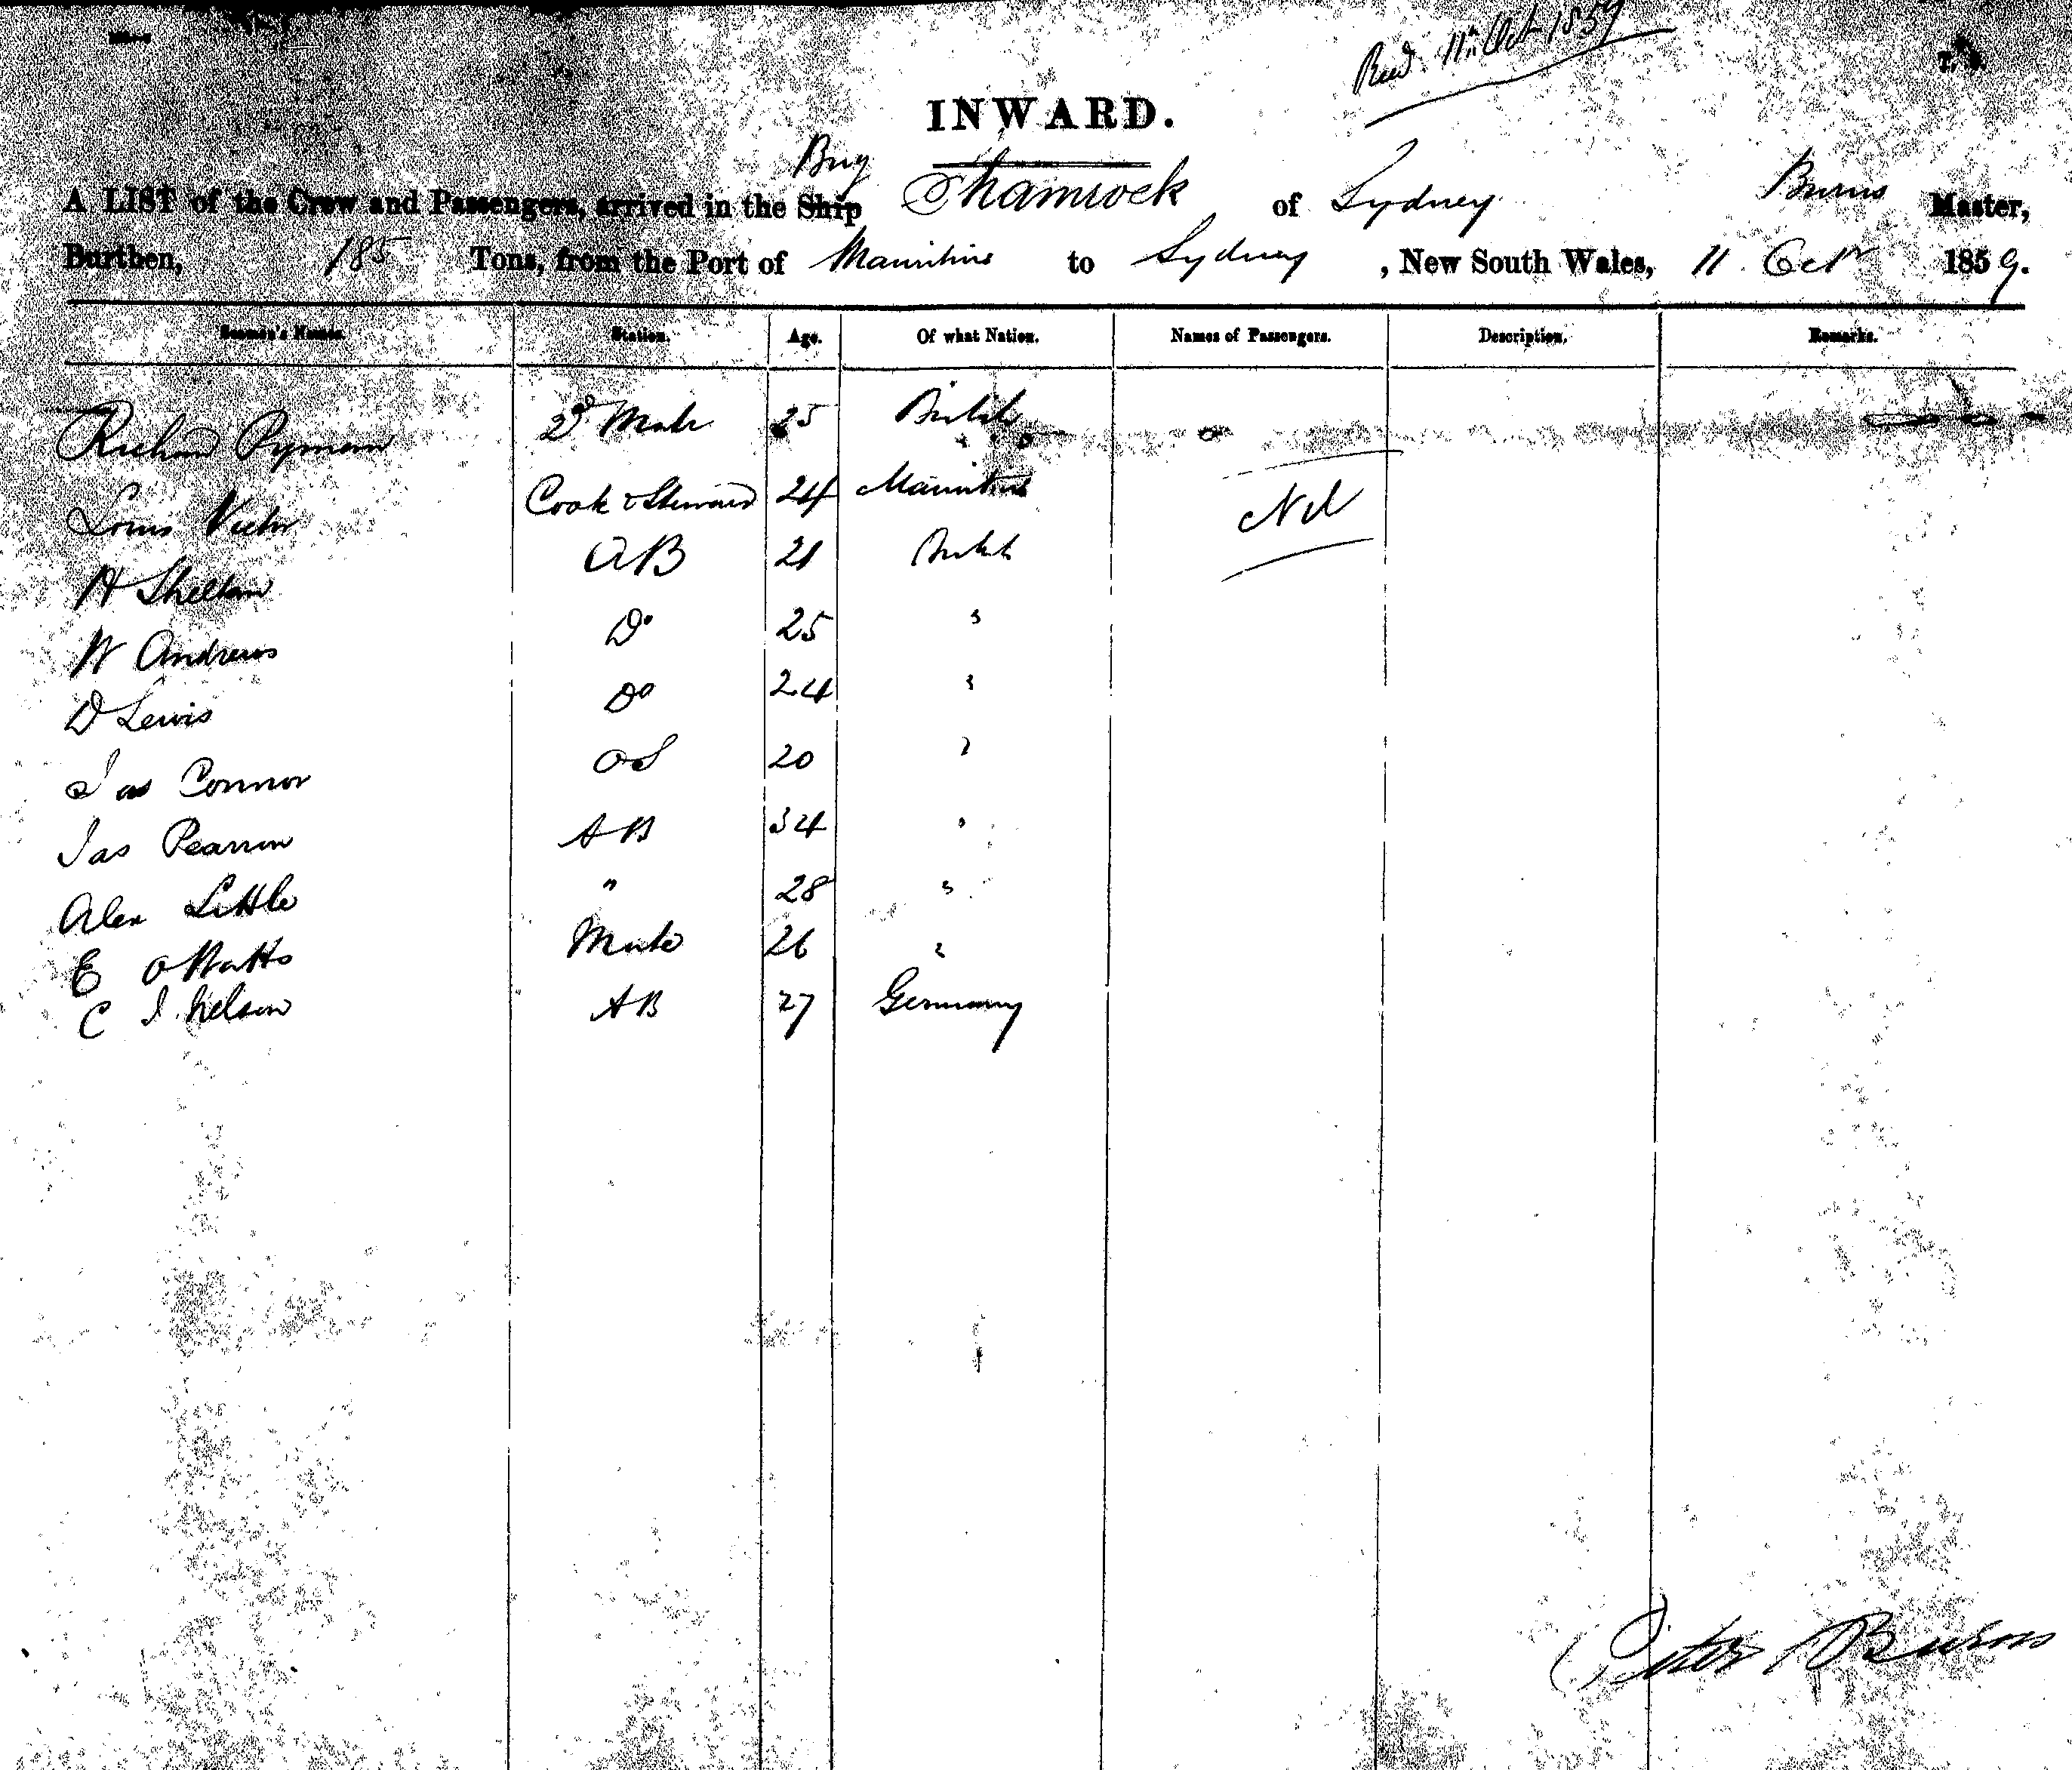 Recd. 11th Oct 1859
INWARD.
Brig
A LIST of the Crew and Passengers, arrived in the Ship Shamrock of Sydney Burns Master,
Burthen, 185 Tons, from the Port of Mauritius to Sydney, New South Wales, 11 Octr 1859.
Seamen's Names. Station. Age. Of what Nation. Names of Passengers. Description. Remarks.
Richard Pyman 2d Mate 25 British
Louis Victor Cook & Steward 24 Mauritius Nil
H Shelton AB 21 British
W Andrews Do 25 "
D Lewis Do 24 "
Jas Connor OS 20 "
Jas Pearson AB 34 "
Alex Little " 28 "
E Watts Mate 26 "
C J. Nelson AB 27 Germany
Peter Burns